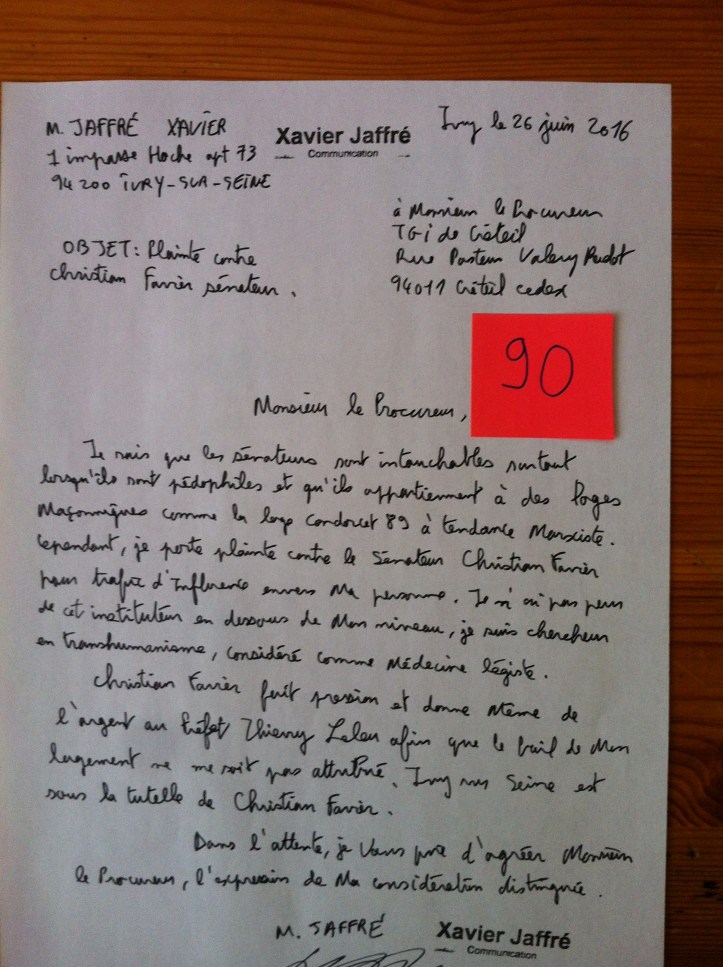 M. JAFFRÉ XAVIER
1 impasse Hoche apt 73
94200 IVRY-SUR-SEINE
Xavier Jaffré
Communication
Ivry le 26 juin 2016
à Monsieur le Procureur
TGi de Créteil
Rue Pasteur Valery Radot
94011 Créteil cedex
OBJET: Plainte contre
Christian Favier sénateur.
90
Monsieur le Procureur,
Je sais que les sénateurs sont intouchables surtout
lorsqu'ils sont pédophiles et qu'ils appartiennent à des loges
Maçonniques comme la loge Condorcet 89 à tendance Marxiste.
Cependant, je porte plainte contre le Sénateur Christian Favier
pour trafic d'Influence envers Ma personne. Je n'ai pas peur
de cet instituteur en dessous de Mon niveau, je suis chercheur
en transhumanisme, considéré comme Médecine légiste.
Christian Favier fait pression et donne Même de
l'argent au Préfet Thierry Leleu afin que le bail de Mon
logement ne me soit pas attribué. Ivry sur Seine est
sous la tutelle de Christian Favier.
Dans l'attente, je Vous prie d'agréer Monsieur
le Procureur, l'expression de Ma considération distinguée.
M. JAFFRÉ
Xavier Jaffré
Communication